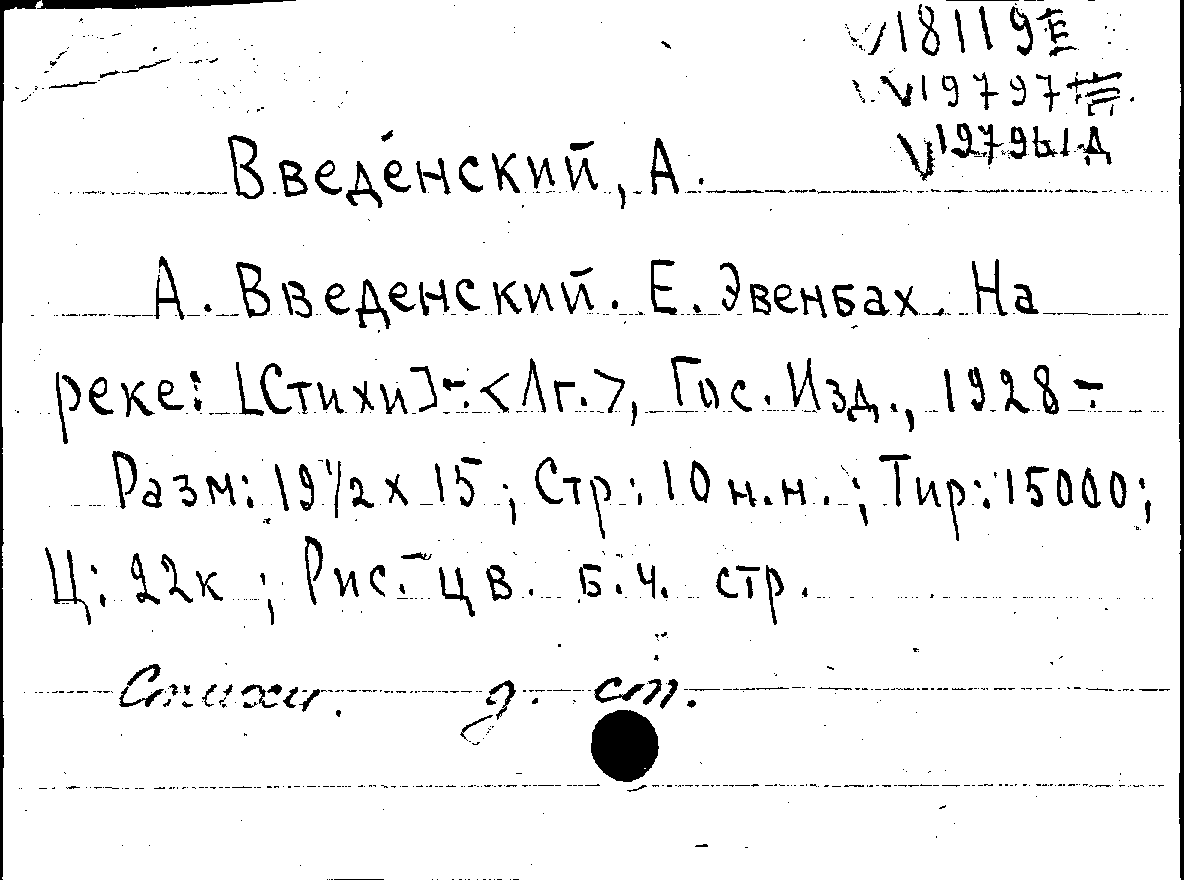 V18119 Е
V19797
V19796
Введе́нский, А.
А. Введенский. Е. Эвенбах. На
реке: [Стихи]-:<Лг.>, Гос. Изд., 1928 -
Разм: 19 1/2 х 15 ; Стр: 10 н.н. ; Тир: 15000;
Ц: 22к ; Рис.- цв. б.ч. стр.
Стихи. д. ст.